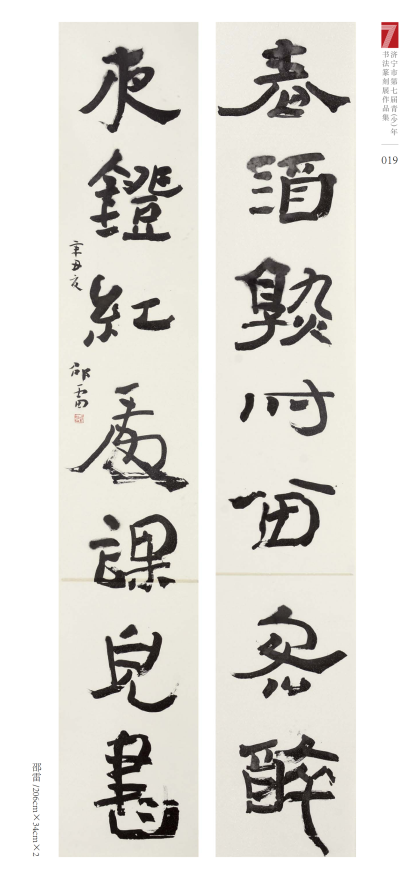 7
济宁市第七届青(少)年
书法篆刻展作品集
019
春酒熟时留客醉
夜鐙紅處課兒書
辛丑夏 邵雷
邵雷 /206cm×34cm×2